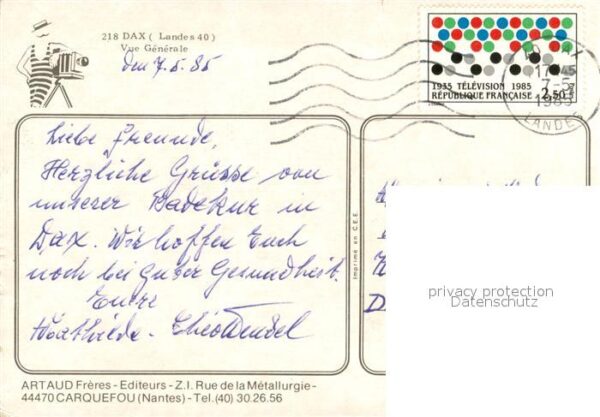 218 DAX ( Landes 40 )
Vue Générale
den 7.5.85
1935 TÉLÉVISION 1985
RÉPUBLIQUE FRANÇAISE 2,50
40 DAX
17 H 45
7-5
1985
LANDES
Liebe Freunde,
Herzliche Grüsse von
unserer Badekur in
Dax. Wir hoffen Euch
noch bei guter Gesundheit.
Eure
imprimé en C.E.E.
privacy protection
Datenschutz
ARTAUD Frères - Editeurs - Z.I. Rue de la Métallurgie -
44470 CARQUEFOU (Nantes) - Tel. (40) 30.26.56